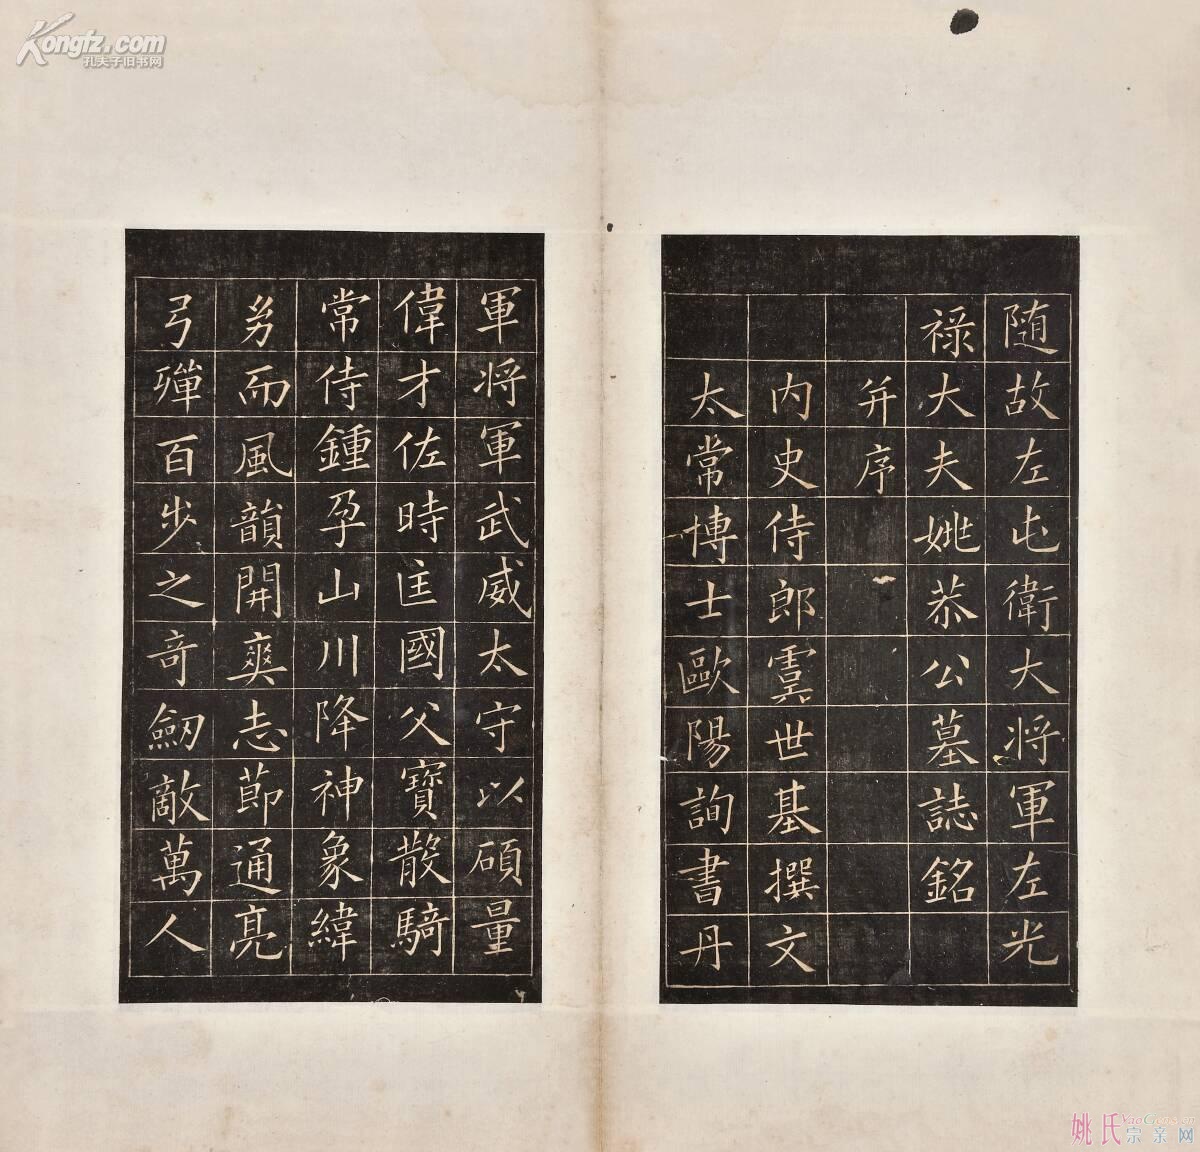 Kongfz.com
孔夫子旧书网
随故左屯衛大将軍左光
禄大夫姚恭公墓誌銘
并序
内史侍郎虞世基撰文
太常博士歐陽詢書丹
軍将軍武威太守以碩量
偉才佐時匡國父寶散騎
常侍鍾孕山川降神象緯
㓜而風韻開爽志節通亮
弓殫百步之奇劒敵萬人
姚氏宗亲网